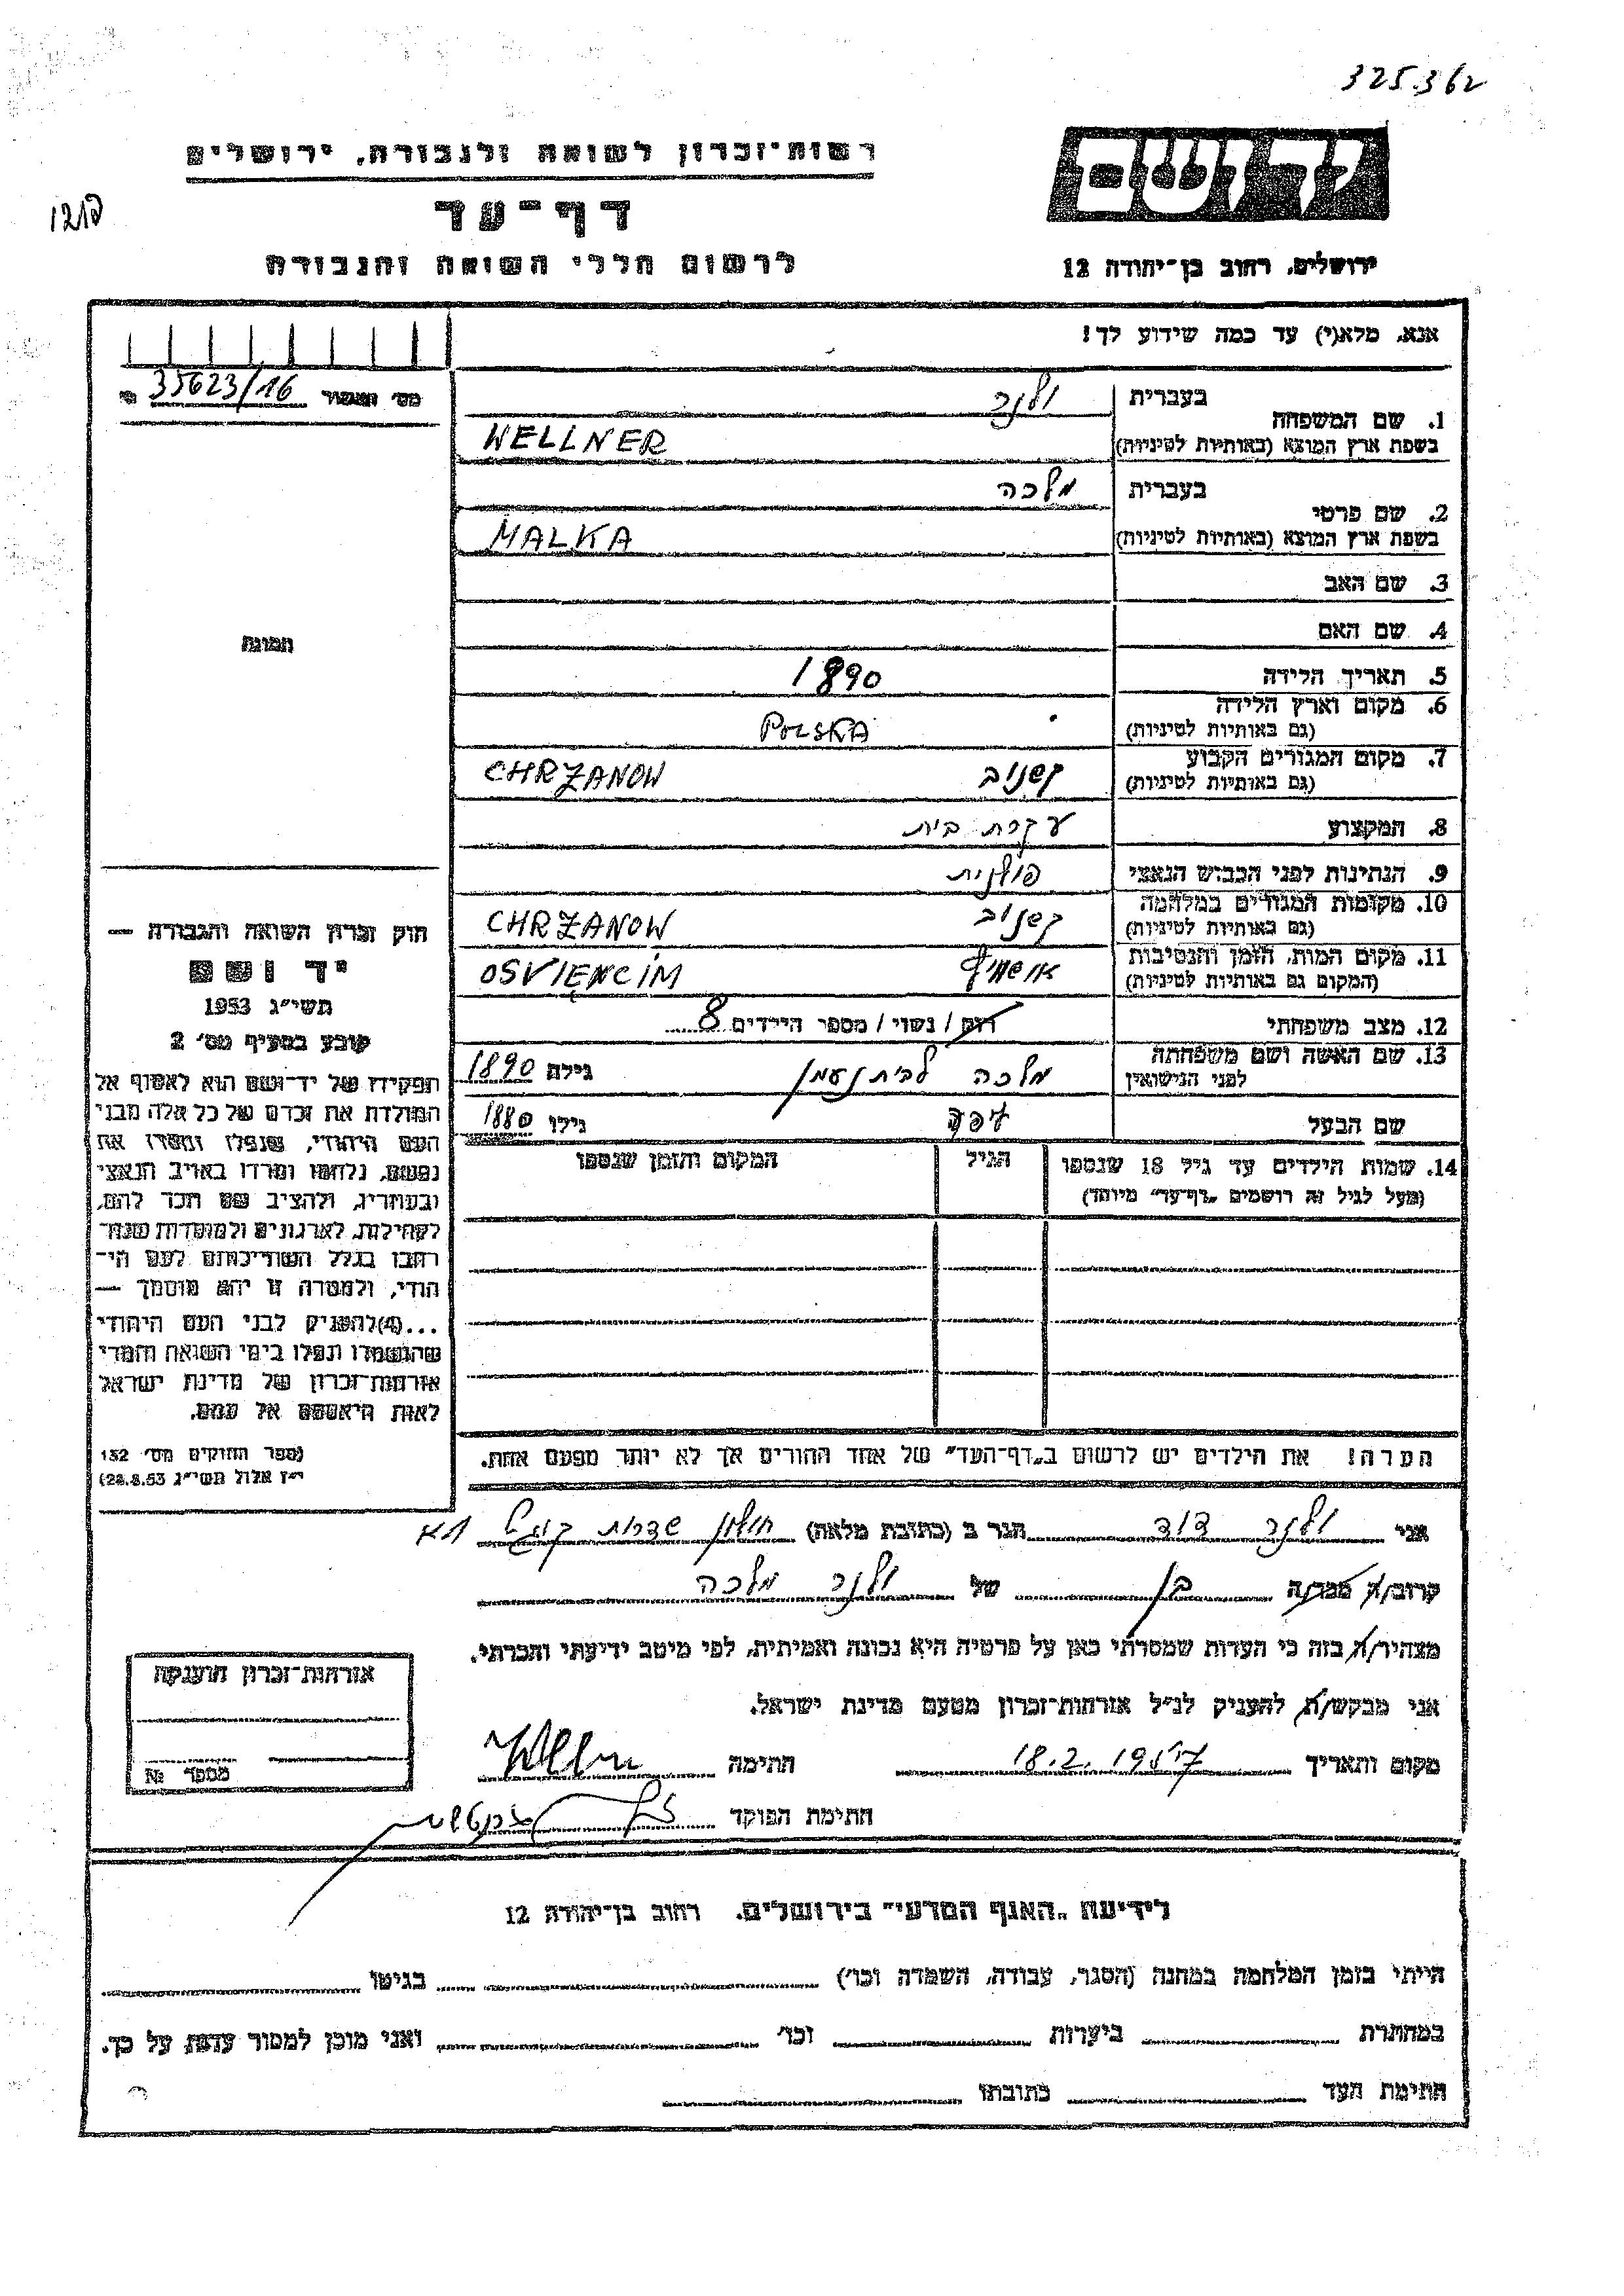 325.362
רשות־זכרון לשואה ולגבורה, ירושלים
דף־עד
לרשום חללי השואה והגבורה
יד ושם
ירושלים, רחוב בן־יהודה 12
אנא, מלא(י) עד כמה שידוע לך!
35623/16
1. שם המשפחה
בעברית ולנר
בשפת ארץ המוצא (באותיות לטיניות) WELLNER
2. שם פרטי
בעברית מלכה
בשפת ארץ המוצא (באותיות לטיניות) MALKA
3. שם האב
4. שם האם
5. תאריך הלידה 1890
6. מקום וארץ הלידה
(גם באותיות לטיניות) POLSKA
7. מקום המגורים הקבוע
(גם באותיות לטיניות) קשנוב CHRZANOW
8. המקצוע עקרת בית
9. הנתינות לפני הכבוש הנאצי פולנית
10. מקומות המגורים במלחמה
(גם באותיות לטיניות) קשנוב CHRZANOW
11. מקום המות, הזמן והנסיבות
(המקום גם באותיות לטיניות) אושויץ OSVIENCIM
12. מצב משפחתי רווק / נשוי / מספר הילדים 8
13. שם האשה ושם משפחתה
לפני הנישואין מלכה לבית נעמן גילה 1890
שם הבעל גילו 1880
14. שמות הילדים עד גיל 18 שנספו
(מעל לגיל זה רושמים „דף־עד” מיוחד)
הגיל
המקום והזמן שנספו
הערה! את הילדים יש לרשום ב„דף־העד” של אחד ההורים אך לא יותר מפעם אחת.
תמונה
חוק זכרון השואה והגבורה —
יד ושם
תשי״ג 1953
קובע בסעיף מס׳ 2
תפקידו של יד־ושם הוא לאסוף אל
המולדת את זכרם של כל אלה מבני
העם היהודי, שנפלו ומסרו את
נפשם, נלחמו ומרדו באויב הנאצי
ובעוזריו, ולהציב שם וזכר להם,
לקהילות, לארגונים ולמוסדות שנח־
רבו בגלל השתייכותם לעם הי־
הודי, ולמטרה זו יהא מוסמך —
...(4) להעניק לבני העם היהודי
שהושמדו ונפלו בימי השואה והמרי
אזרחות־זכרון של מדינת ישראל
לאות היאספם אל עמם.
(ספר החוקים מס׳ 132
י״ז אלול תשי״ג 28.8.53)
אני ולנר דוד הגר ב (כתובת מלאה) חולון שדרות
קרוב/ה מכר/ה בן של ולנר מלכה
מצהיר/ה בזה כי העדות שמסרתי כאן על פרטיה היא נכונה ואמיתית, לפי מיטב ידיעתי והכרתי.
אני מבקש/ת להעניק לנ״ל אזרחות־זכרון מטעם מדינת ישראל.
מקום ותאריך 18.2.1957 חתימה
חתימת הפוקד
אזרחות־זכרון הוענקה
מספר №
לידיעת „האגף המדעי” בירושלים, רחוב בן־יהודה 12
הייתי בזמן המלחמה במחנה (הסגר, עבודה, השמדה וכו׳) בגיטו
במחתרת ביערות וכו׳ ואני מוכן למסור עדות על כך.
חתימת העד כתובתו